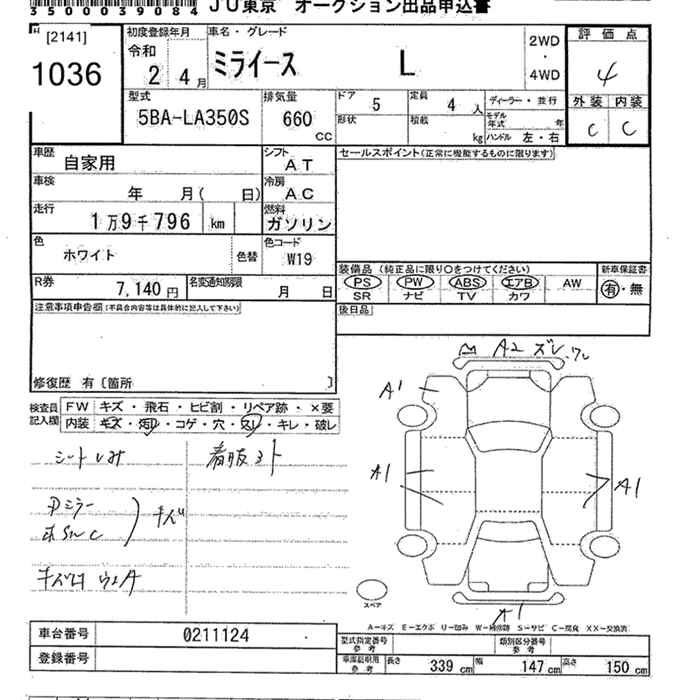 350039084 JU東京 オークション出品申込書
[2141]
1036
初度登録年月
令和
2 4月
車名・グレード
ミライース L
2WD
・
4WD
評価点
4
外装 内装
C C
型式
5BA-LA350S
排気量
660
CC
ドア 5
定員 4人
ディーラー・並行
形状
積載 kg
モデル年式 年
ハンドル 左・右
車歴 自家用
シフト AT
セールスポイント(正常に機能するものに限ります)
車検 年 月( 日)
冷房 AC
走行 1万9千796 km
燃料 ガソリン
色 ホワイト 色替
色コード W19
装備品 (純正品に限り〇をつけてください)
新車保証書
PS PW ABS エアB AW
SR ナビ TV カワ
有・無
R券 7,140円
名変通知期限 月 日
後日品
注意事項申告欄(不具合内容等は具体的に記入して下さい)
修復歴 有 〔箇所 〕
検査員記入欄
FW キズ・飛石・ヒビ割・リペア跡・×要
内装 キズ・汚レ・コゲ・穴・スレ・キレ・破レ
シートしみ
キズ
A2 ズレ
A1
A1
A1
A1
スペア
A-キズ E-エクボ U-凹み W-補修跡 S-サビ C-腐食 XX-交換済
車台番号 0211124
型式指定番号 参考
類別区分番号 参考
登録番号
車庫証明用 参考
長さ 339cm
幅 147cm
高さ 150cm